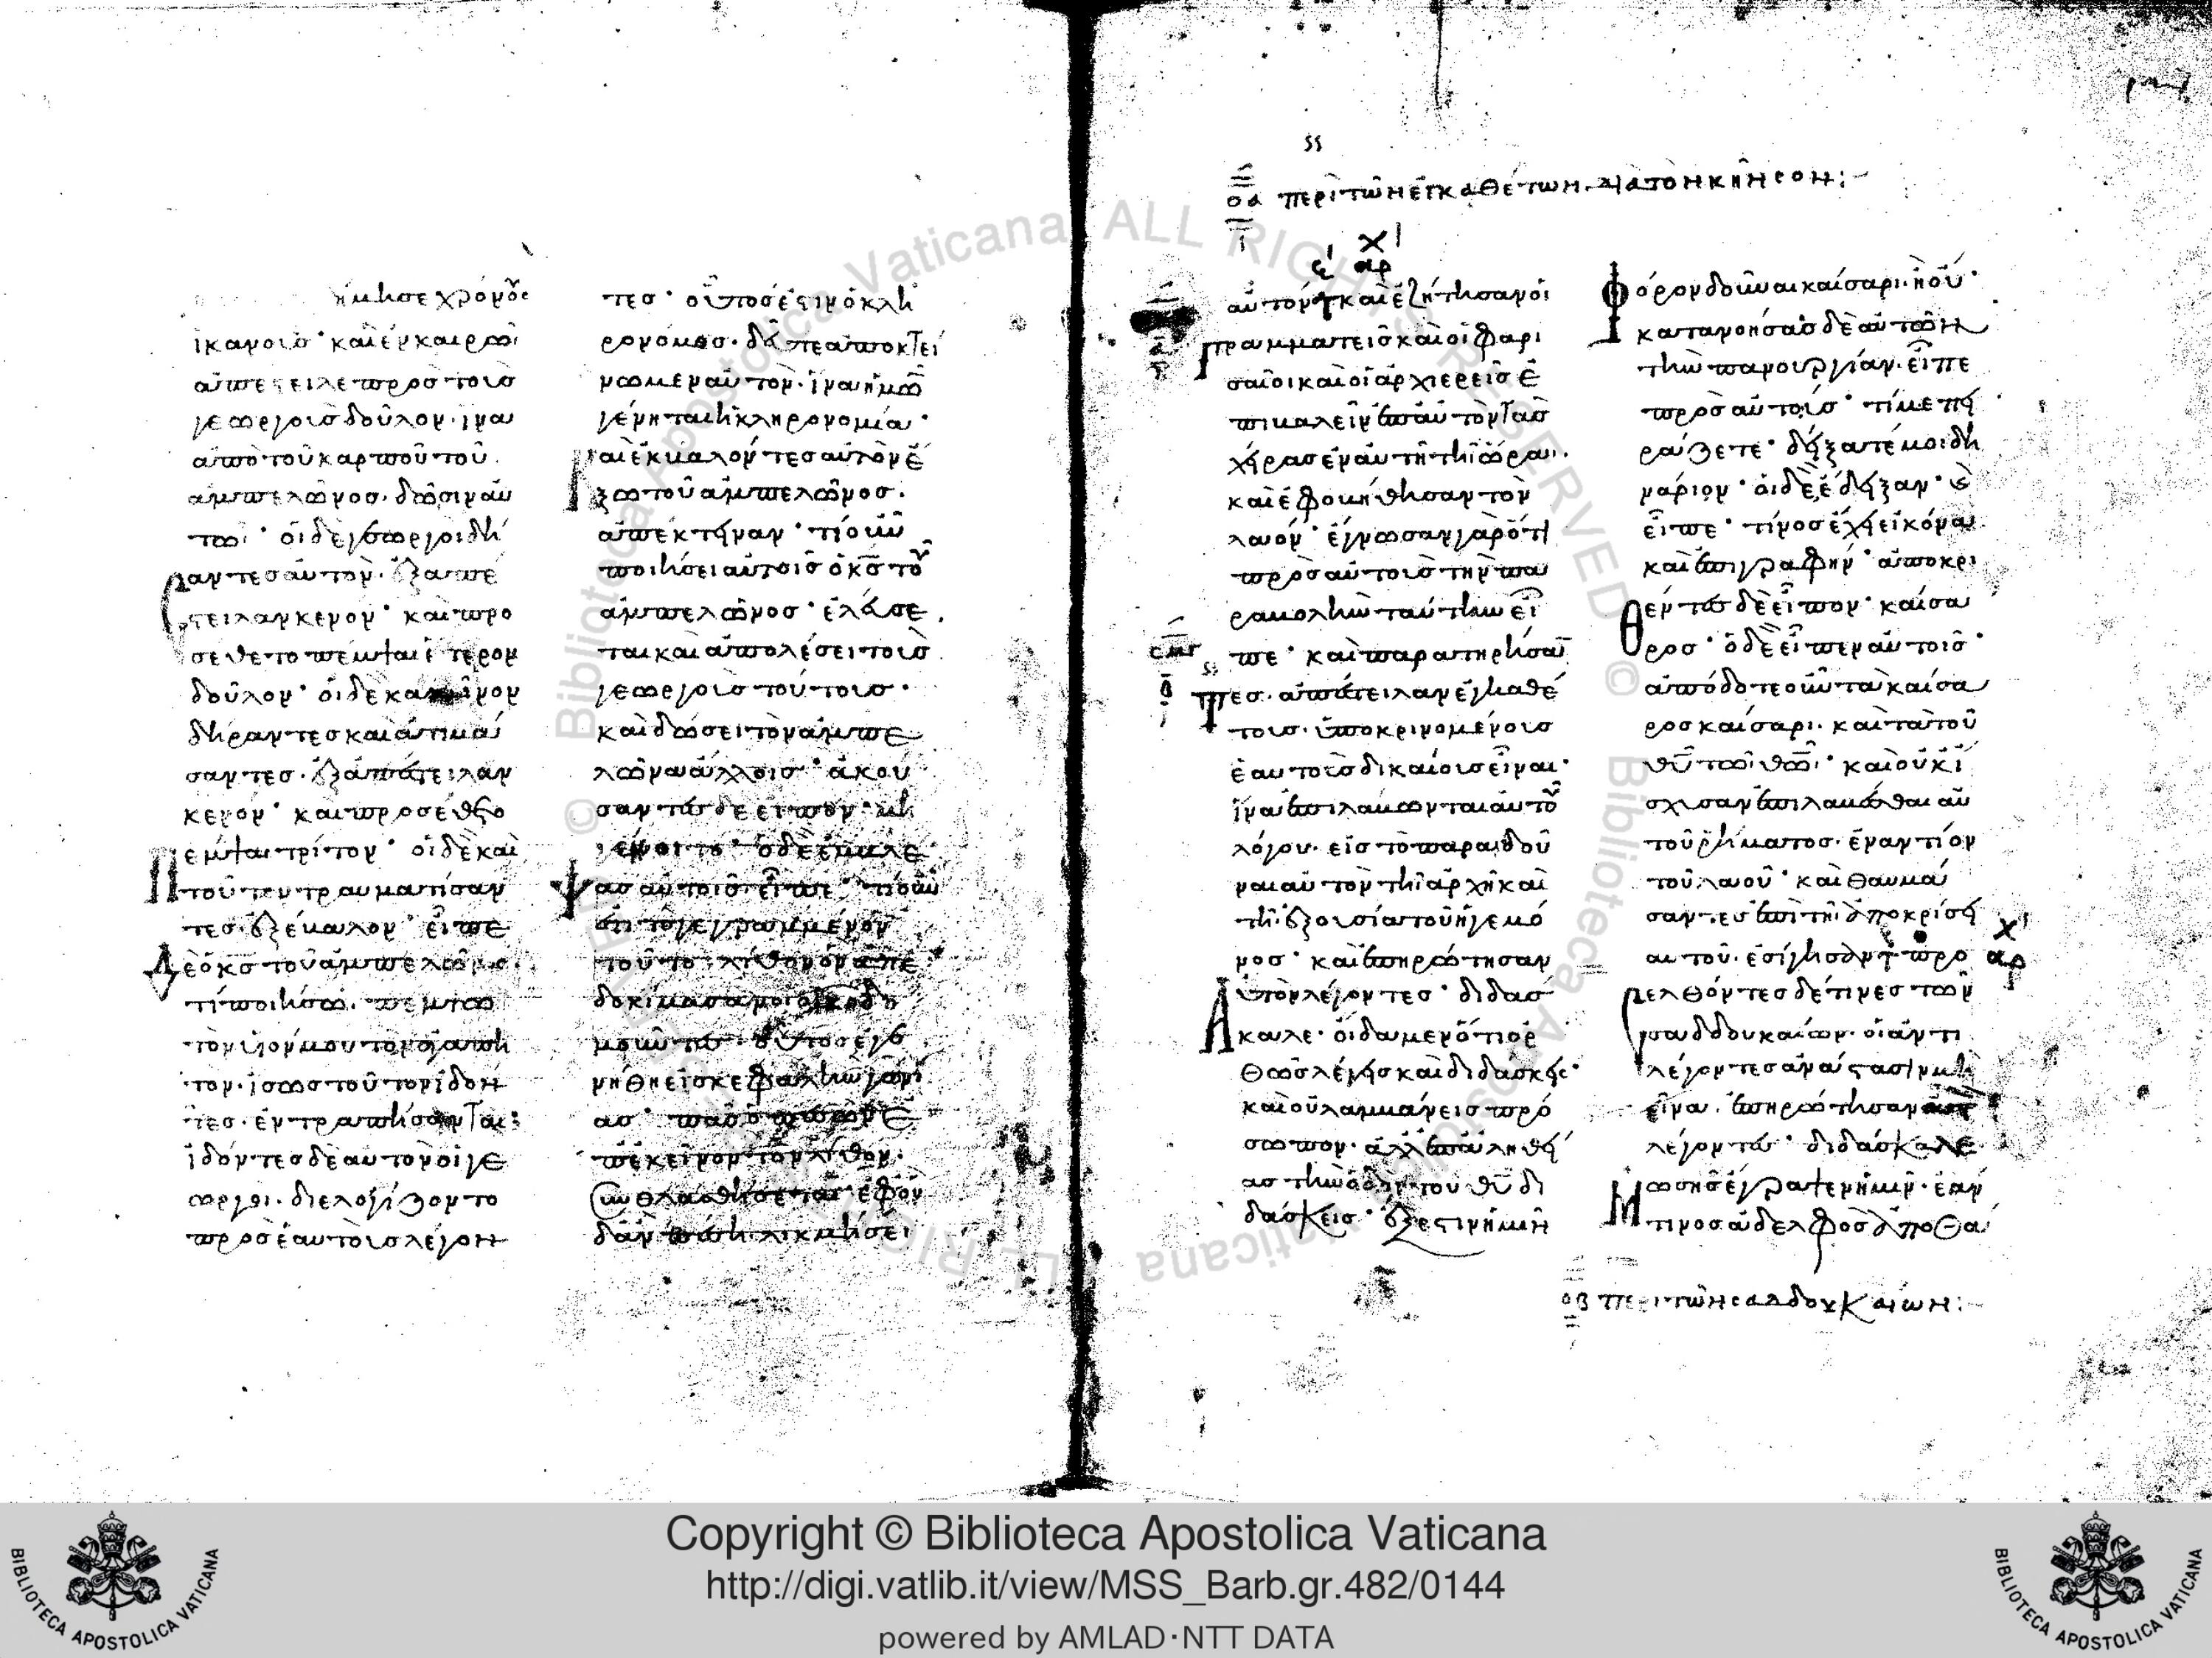 ἠμησε χρόνους
ἱκανούς· καὶ ἐν καιρῶι
ἀπέστειλε πρὸς τοὺς
γεωργοὺς δοῦλον· ἵνα
ἀπὸ τοῦ καρποῦ τοῦ
ἀμπελῶνος· δῶσιν αὐ
τῶι· οἱ δὲ γεωργοὶ δεί
ραντες αὐτὸν· ἐξαπέ
στειλαν κενόν· καὶ προ
σέθετο πέμψαι ἕτερον
δοῦλον· οἱ δὲ κἀκεῖνον
δείραντες καὶ ἀτιμά
σαντες· ἐξαπέστειλαν
κενόν· καὶ προσέθετο
πέμψαι τρίτον· οἱ δὲ καὶ
τοῦτον τραυματίσαν
τες ἐξέβαλον· εἶπε
δὲ ὁ κς τοῦ ἀμπελῶνος
τί ποιήσω· πέμψω
τὸν υἱόν μου τὸν ἀγαπη
τον· ἴσως τοῦτον ἰδόν
τες· ἐντραπήσονται:
ἰδόντες δὲ αὐτὸν οἱ γε
ωργοι· διελογίζοντο
πρὸς ἑαυτοὺς λέγον
τες· οὗτός ἐστιν ὁ κλη
ρονόμος· δεῦτε ἀποκτεί
νωμεν αὐτόν· ἵνα ἡμῶν
γένηται ἡ κληρονομία·
καὶ ἐκβαλόντες αὐτὸν ἔ
ξω τοῦ ἀμπελῶνος·
ἀπέκτειναν· τί οὖν
ποιήσει αὐτοῖς ὁ κς τοῦ
ἀμπελῶνος· ἐλεύσε
ται καὶ ἀπολέσει τοὺς
γεωργοὺς τούτους·
καὶ δώσει τὸν ἀμπε
λῶνα ἄλλοις· ἀκού
σαντες δὲ εἶπον· μὴ
γένοιτο· ὁ δὲ ἐμβλέ
ψας αὐτοῖς εἶπε· τί οὖν
ἐστι τὸ γεγραμμένον
τοῦτο· λίθον ὃν ἀπε
δοκίμασαν οἱ οἰκοδο
μοῦντες· οὗτος ἐγε
νήθη εἰς κεφαλὴν γωνί
ας· πᾶς ὁ πεσὼν ἐ
π' ἐκεῖνον τὸν λίθον·
συνθλασθήσεται· ἐφ' ὃν
δ' ἂν πέσῃ λικμήσει
οα περὶ τῶν ἐγκαθέτων διὰ τὸν κῆνσον:-
αὐτόν· καὶ ἐζήτησαν οἱ
γραμματεῖς καὶ οἱ φαρι
σαῖοι καὶ οἱ ἀρχιερεῖς ἐ
πιβαλεῖν ἐπ' αὐτὸν τὰς
χεῖρας ἐν αὐτῆ τῆ ὥρα·
καὶ ἐφοβήθησαν τὸν
λαόν· ἔγνωσαν γὰρ ὅτι
πρὸς αὐτοὺς τὴν πα
ραβολὴν ταύτην εἶ
πε· καὶ παρατηρήσαν
τες· ἀπέστειλαν ἐγκαθέ
τους· ὑποκρινομένους
ἑαυτοὺς δικαίους εἶναι·
ἵνα ἐπιλάβωνται αὐτοῦ
λόγου· εἰς τὸ παραδοῦ
ναι αὐτὸν τῆ ἀρχῆ καὶ
τῆ ἐξουσία τοῦ ἡγεμό
νος· καὶ ἐπηρώτησαν
αὐτὸν λέγοντες· διδάσ
καλε· οἴδαμεν ὅτι ὀρ
θῶς λέγεις καὶ διδάσκεις·
καὶ οὐ λαμβάνεις πρό
σωπον· ἀλλ' ἐπ' ἀληθεί
ας τὴν ὁδὸν τοῦ θυ δι
δάσκεις· ἔξεστιν ἡμῖν
φόρον δοῦναι καίσαρι· ἢ οὔ·
κατανοήσας δὲ αὐτῶν
τὴν πανουργίαν· εἶπε
πρὸς αὐτούς· τί με πει
ράζετε· δείξατέ μοι δη
νάριον· οἱ δὲ ἔδειξαν· καὶ
εἶπε· τίνος ἔχει εἰκόνα
καὶ ἐπιγραφήν· ἀποκρι
θέντες δὲ εἶπον· καίσα
ρος· ὁ δὲ εἶπεν αὐτοῖς·
ἀπόδοτε οὖν τὰ καίσα
ρος καίσαρι· καὶ τὰ τοῦ
θυ τῶι θῶι· καὶ οὐκ ἴ
σχυσαν ἐπιλαβέσθαι αὐ
τοῦ ῥήματος· ἐναντίον
τοῦ λαοῦ· καὶ θαυμά
σαντες ἐπὶ τῆ ἀποκρίσει
αὐτοῦ· ἐσίγησαν· προ
σελθόντες δέ τινες τῶν
σαδδουκαίων· οἱ ἀντι
λέγοντες ἀνάστασιν μὴ
εἶναι· ἐπηρώτησαν αὐτὸν
λέγοντες· διδάσκαλε
μωσῆς ἔγραψεν ἡμῖν· ἐάν
τινος ἀδελφὸς ἀποθά
οβ περὶ τῶν σαδδουκαίων:-
Copyright © Biblioteca Apostolica Vaticana
http://digi.vatlib.it/view/MSS_Barb.gr.482/0144
powered by AMLAD·NTT DATA